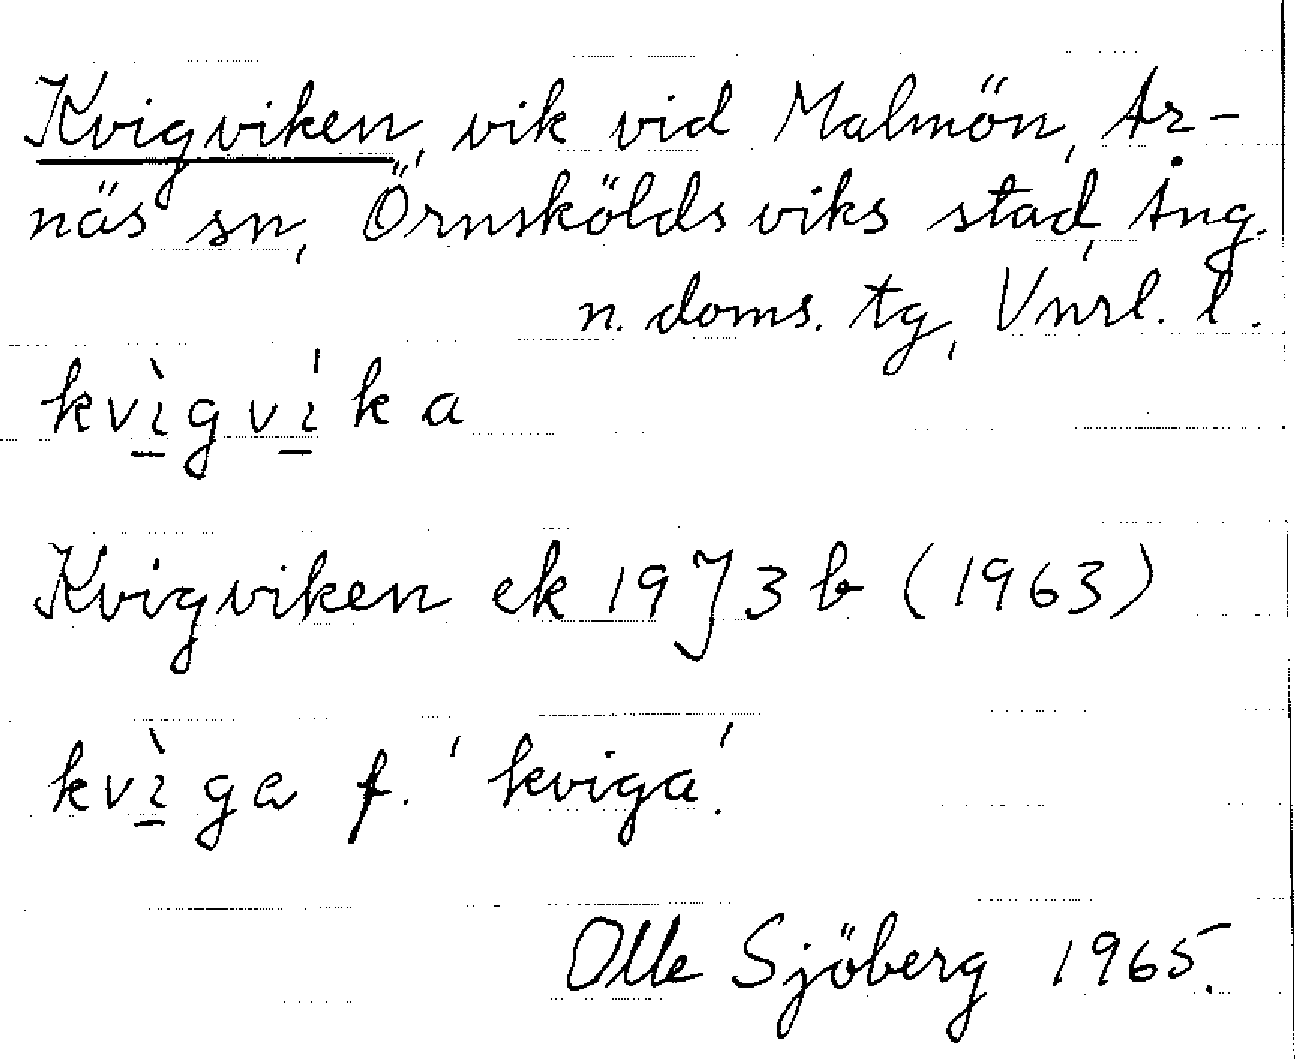 Kvigviken, vik vid Malmön, Ar-
näs sn, Örnsköldsviks stad, Ång.
n. doms. tg, Vnrl. l.
kvı̱̀gvı̱́ka
Kvigviken ek 19J3b (1963)
kvı̱̀ga f. 'kviga'.
Olle Sjöberg 1965.